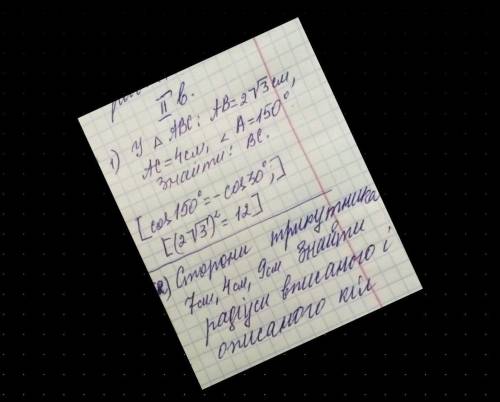 II в.
1) У △ ABC: AB=2√3 см,
AC=4см, ∠A=150°.
Знайти: BC.
[cos150°=-cos30°;]
[(2√3)²=12]
2) Сторони трикутника
7см, 4см, 9см знайти
радіуси вписаного і
описаного кіл